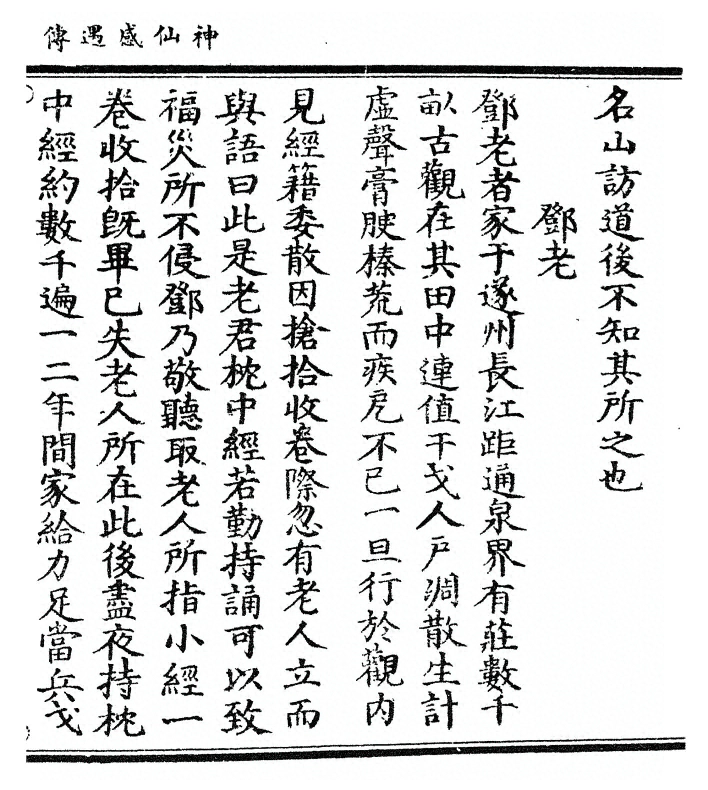 神仙感遇傳
名山訪道後不知其所之也
鄧老
鄧老者家于遂州長江距通泉界有莊數千
畒古觀在其田中連值干戈人戶凋散生計
虛聲膏腴榛荒而疾危不已一旦行於觀内
見經籍委散因搶拾收卷際忽有老人立而
與語曰此是老君枕中經若勤持誦可以致
福災所不侵鄧乃敬聽取老人所指小經一
卷收拾旣畢已失老人所在此後盡夜持枕
中經約數千遍一二年間家給力足當兵戈